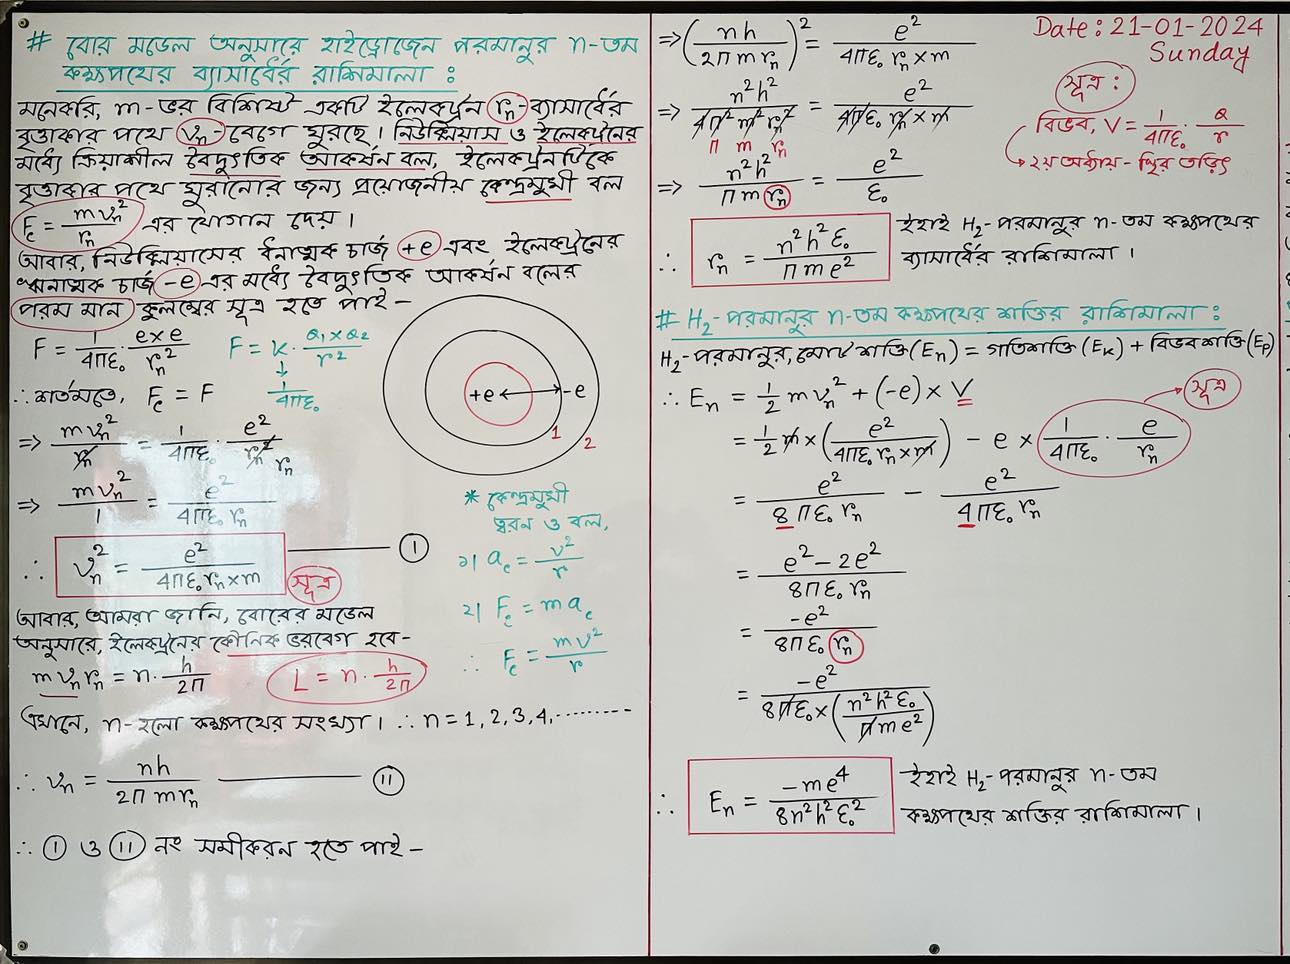 # বোর মডেল অনুসারে হাইড্রোজেন পরমানুর n-তম
কক্ষপথের ব্যাসার্ধের রাশিমালা :
মনেকরি, m-ভর বিশিষ্ট একটি ইলেকট্রন rₙ-ব্যাসার্ধের
বৃত্তাকার পথে vₙ-বেগে ঘুরছে। নিউক্লিয়াস ও ইলেকট্রনের
মধ্যে ক্রিয়াশীল বৈদ্যুতিক আকর্ষন বল, ইলেকট্রনটিকে
বৃত্তাকার পথে ঘুরানোর জন্য প্রয়োজনীয় কেন্দ্রমুখী বল
F_c = mvₙ²/rₙ এর যোগান দেয়।
আবার, নিউক্লিয়াসের ধনাত্মক চার্জ +e এবং ইলেকট্রনের
ঋনাত্মক চার্জ -e এর মধ্যে বৈদ্যুতিক আকর্ষন বলের
পরম মান কুলম্বের সূত্র হতে পাই -
F = 1/4πε₀ · e×e/rₙ² F = k · Q₁×Q₂/r²
↓
1/4πε₀
∴ শর্তমতে, F_c = F
⇒ mvₙ²/rₙ = 1/4πε₀ · e²/rₙ² rₙ
⇒ mvₙ²/1 = e²/4πε₀rₙ
∴ vₙ² = e²/4πε₀rₙ×m ——— (I)
সূত্র
+e -e
1 2
* কেন্দ্রমুখী
ত্বরন ও বল,
১) a_c = v²/r
২) F_c = ma_c
∴ F_c = mv²/r
আবার, আমরা জানি, বোরের মডেল
অনুসারে, ইলেকট্রনের কৌনিক ভরবেগ হবে-
mvₙrₙ = n · h/2π L = n · h/2π
এখানে, n-হলো কক্ষপথের সংখ্যা। ∴ n = 1, 2, 3, 4, ·········
∴ vₙ = nh/2πmrₙ ——— (II)
∴ (I) ও (II) নং সমীকরন হতে পাই -
⇒ (nh/2πmrₙ)² = e²/4πε₀rₙ×m
⇒ n²h²/4π²m²rₙ² = e²/4πε₀rₙ×m
π m rₙ
⇒ n²h²/πmrₙ = e²/ε₀
∴ rₙ = n²h²ε₀/πme² ইহাই H₂-পরমানুর n-তম কক্ষপথের
ব্যাসার্ধের রাশিমালা।
Date: 21-01-2024
Sunday
সূত্র :
বিভব, V = 1/4πε₀ · Q/r
→ ২য় অধ্যায় - স্থির তড়িৎ
# H₂-পরমানুর n-তম কক্ষপথের শক্তির রাশিমালা :
H₂-পরমানুর, মোট শক্তি (Eₙ) = গতিশক্তি (E_k) + বিভবশক্তি (E_p)
∴ Eₙ = 1/2 mvₙ² + (-e) × V সূত্র
= 1/2 m × (e²/4πε₀rₙ×m) - e × 1/4πε₀ · e/rₙ
= e²/8πε₀rₙ - e²/4πε₀rₙ
= e² - 2e²/8πε₀rₙ
= -e²/8πε₀rₙ
= -e²/8πε₀×(n²h²ε₀/πme²)
∴ Eₙ = -me⁴/8n²h²ε₀² ইহাই H₂-পরমানুর n-তম
কক্ষপথের শক্তির রাশিমালা।